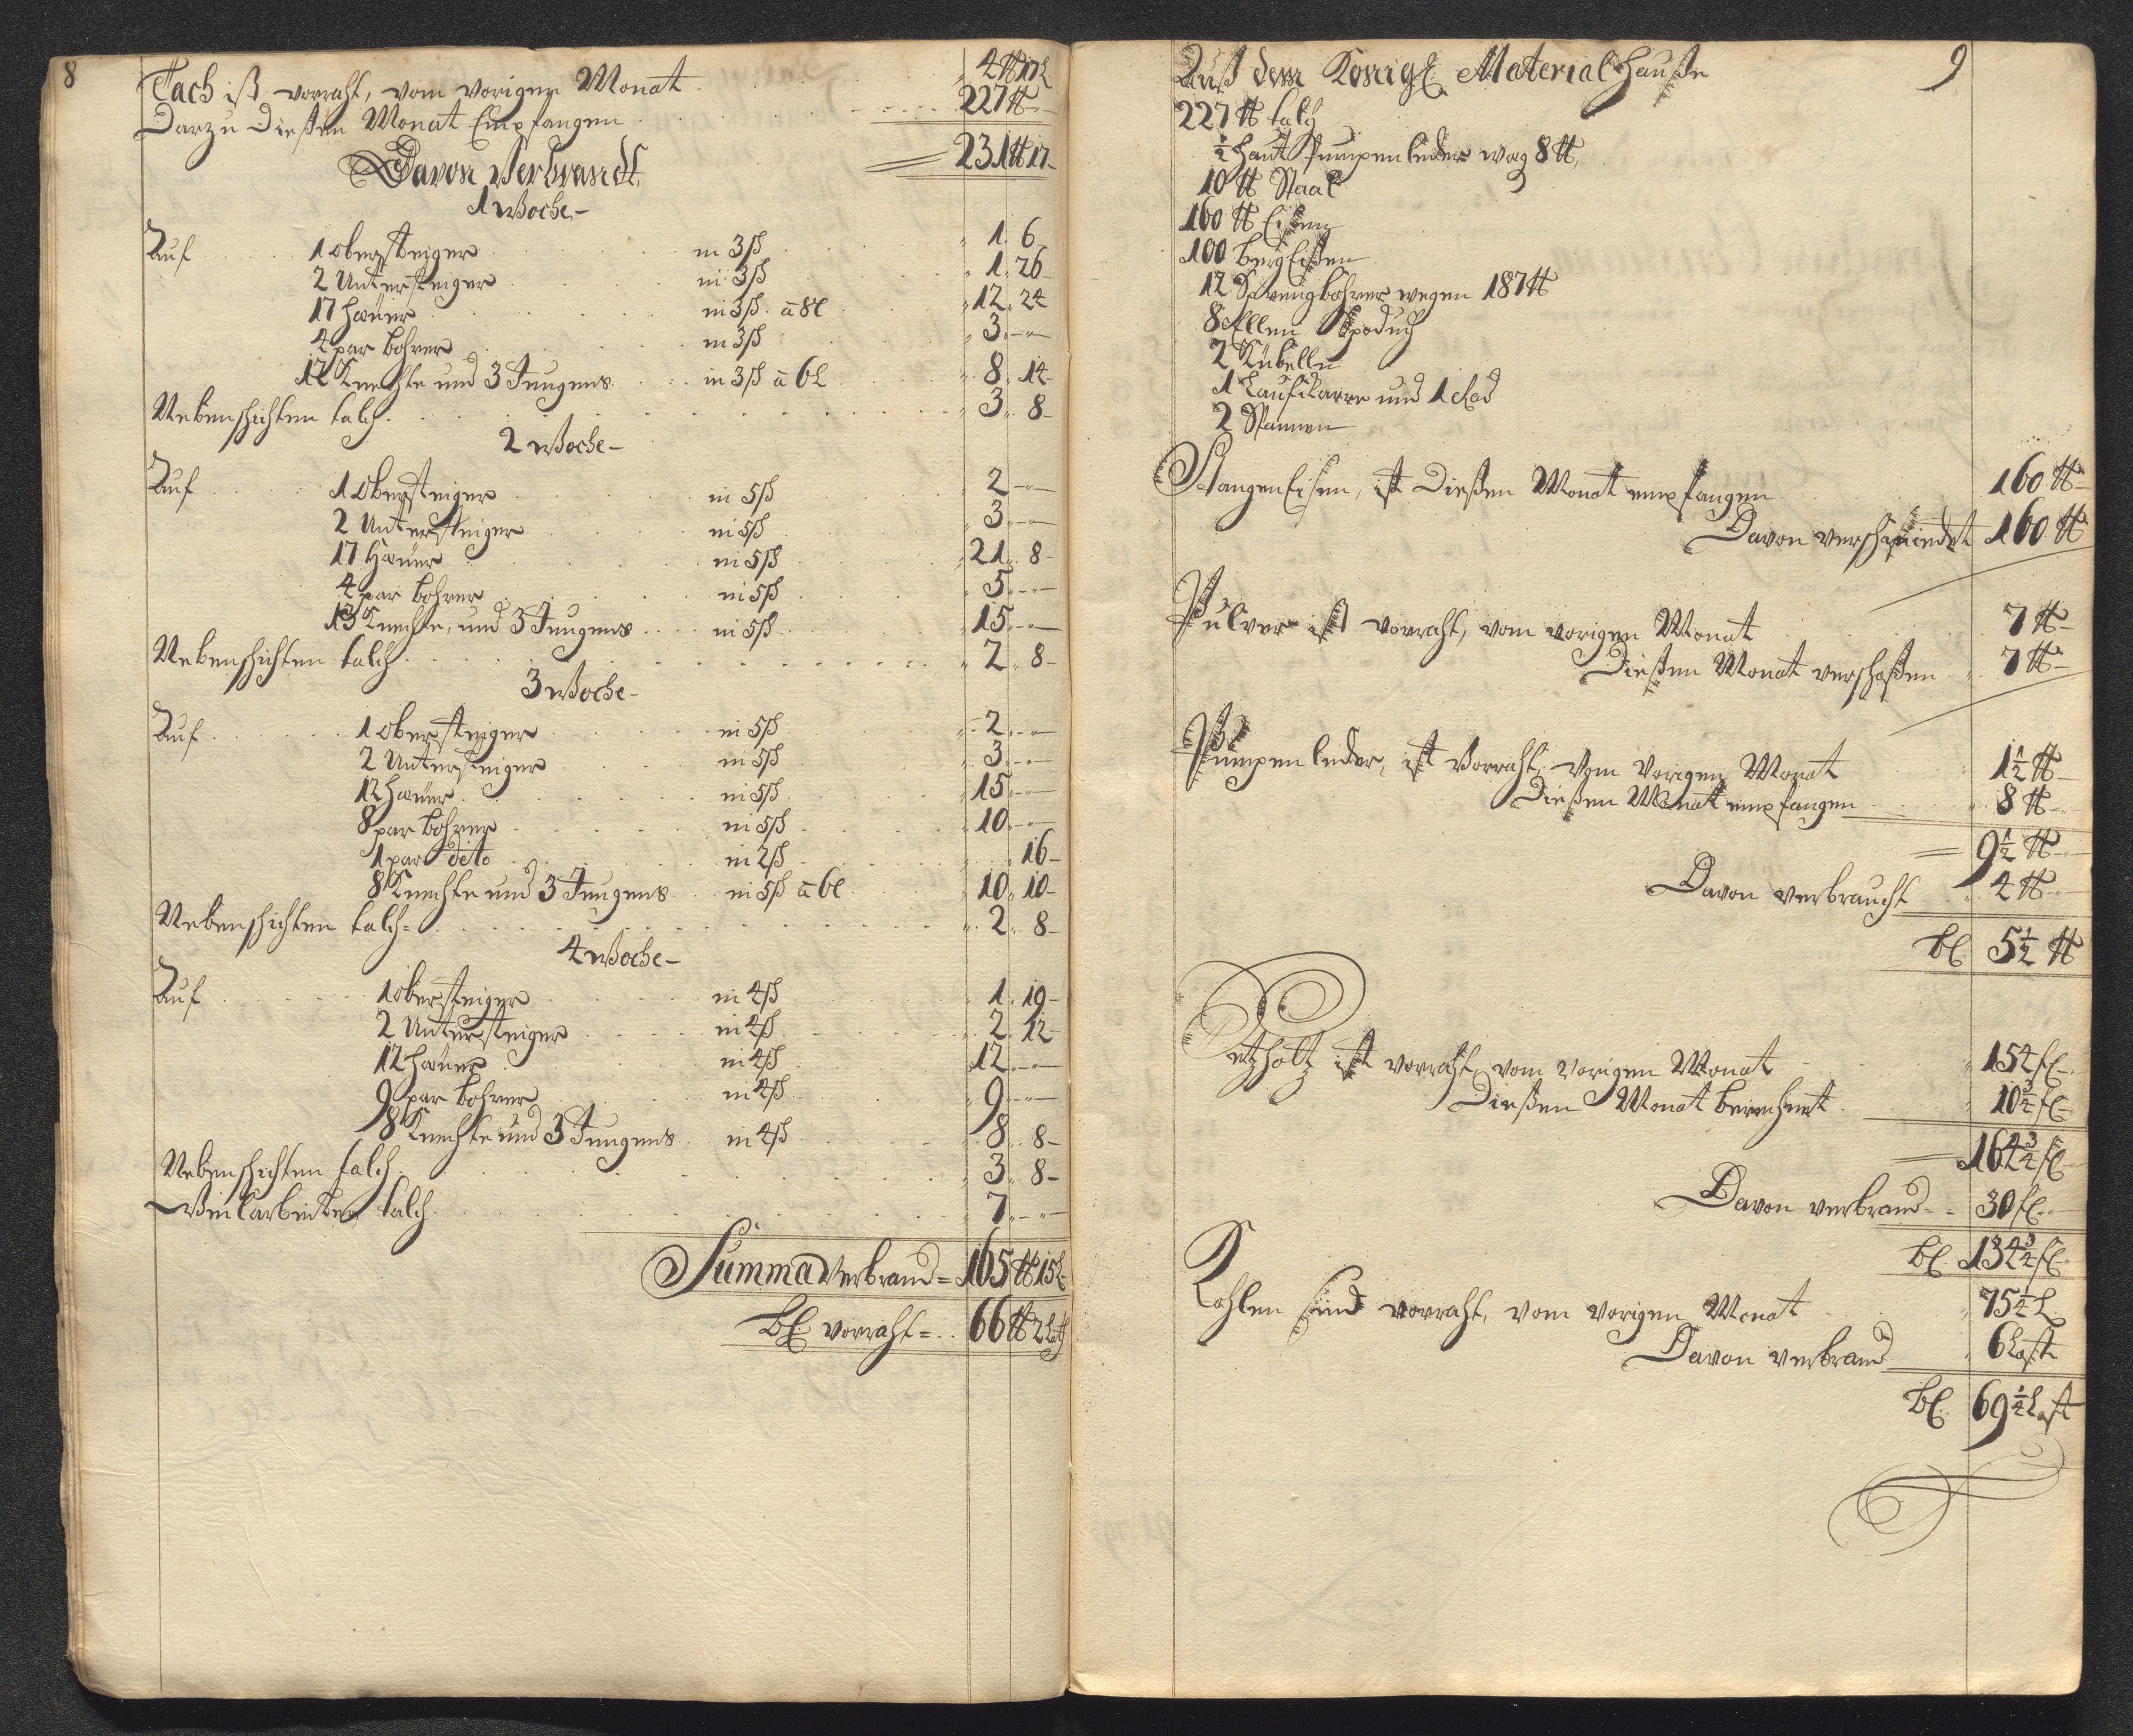 8
Tach iß vorraht, vom vorigen Monat 4 ℔ 17 L
Darzu Dießen Monat Empfangen 227 ℔
231 ℔ 17
Davon Verbrandt
1 Woche
Auf 1 obersteiger in 3 ß 1 6
2 Untersteiger in 3 ß 1 26
17 hæuer in 3 ß a 8 l 12 24
4 par bohrer in 3 ß 3
12 Knechte und 3 Jungens in 3 ß a 6 l 8 14
Nebenschichten talch 3 8
2 Woche
Auf 1 Obersteiger in 5 ß 2
2 Untersteiger in 5 ß 3
17 Hæuer in 5 ß 21 8
4 par bohrer in 5 ß 5
13 Knechte, und 3 Jungens in 5 ß 15
Nebenschichten talch 2 8
3 Woche
Auf 1 obersteiger in 5 ß 2
2 Untersteiger in 5 ß 3
12 hæuer in 5 ß 15
8 par bohrer in 5 ß 10
1 par dito in 2 ß 16
8 Knechte und 3 Jungens in 5 ß a 6 l 10 10
Nebenschichten talch 2 8
4 Woche
Auf 1 obersteiger in 4 ß 1 19
2 Untersteiger in 4 ß 2 12
12 hæuer in 4 ß 12
9 par bohrer in 4 ß 9
8 Knechte und 3 Jungens in 4 ß 8 8
Nebenschichten talch 3 8
Weilarbeiter talch 7
Summa Verbrand = 165 ℔ 15 L
bl. vorraht = 66 ℔ 2 Lth
9
Auß dem Königl. Material Hauße
227 ℔ talg
½ haut Pumpenleder wog 8 ℔
10 ℔ Staal
160 ℔ Eisen
100 bergEißen
12 Sprengbohrer wegen 187 ℔
8 Ellen
2 Kübelln
1 Laufkarre und 1 Rad
2 Spannen
StangenEisen, ist Dießen Monat empfangen 160 ℔
Davon verschmiedet 160 ℔
Pulver ist vorraht, vom vorigen Monat 7 ℔
Dießen Monat verschoßen 7 ℔
Pumpenleder, ist Vorraht, vom Vorigen Monat 1½ ℔
Dießen Monat empfangen 8 ℔
9½ ℔
Davon verbraucht 4 ℔
bl. 5½ ℔
Setzholtz ist vorraht, vom vorigen Monat 154 fl
Dießen Monat berechnet 10¾ fl
164¾ fl
Davon verbrand 30 fl
bl. 134¾ fl
Kohlen sind vorraht, vom vorigen Monat 75½ L
Davon verbrand 6 Last
bl. 69½ Last